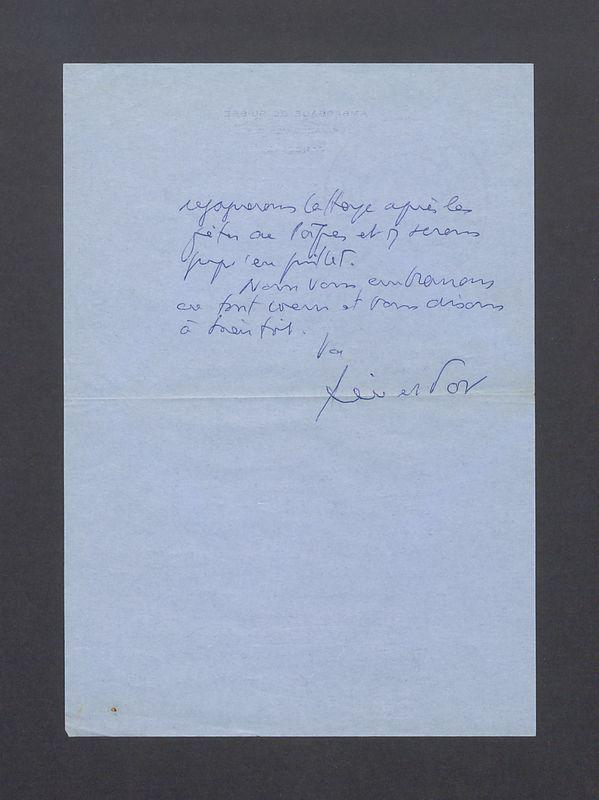 AMBASSADE DE SUISSE
regagnerons La Haye après les
fêtes de Pâques et y serons
jusqu'en juillet.
Nous vous embrassons
de tout coeur et vous disons
à bientôt.